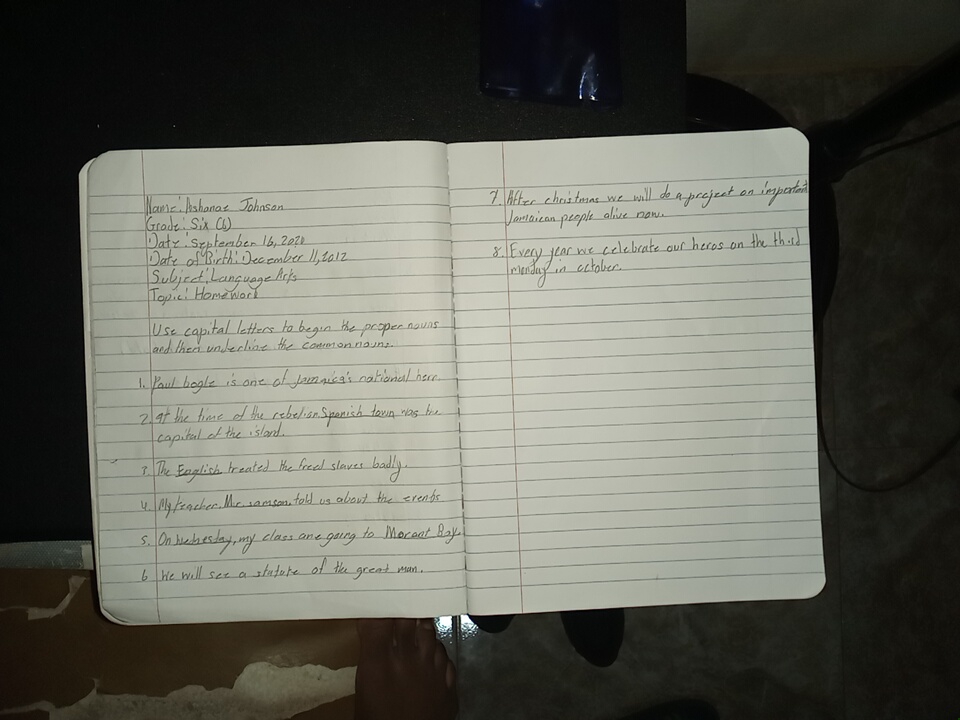 Name: Ashanae Johnson
Grade: Six (6)
Date: September 16, 2020
Date of Birth: December 11, 2012
Subject: Language Arts
Topic: Homework
Use capital letters to begin the proper nouns
and then underline the common nouns.
1. Paul bogle is one of Jamaica's national hero.
2. At the time of the rebelion Spanish town was the
capital of the island.
3. The English treated the freed slaves badly.
4. My teacher, Mr. samson, told us about the events
5. On Wednesday, my class are going to Morant Bay.
6 We will see a statute of the great man.
7. After christmas we will do a project on important
Jamaican people alive now.
8. Every year we celebrate our heros on the third
monday in october.